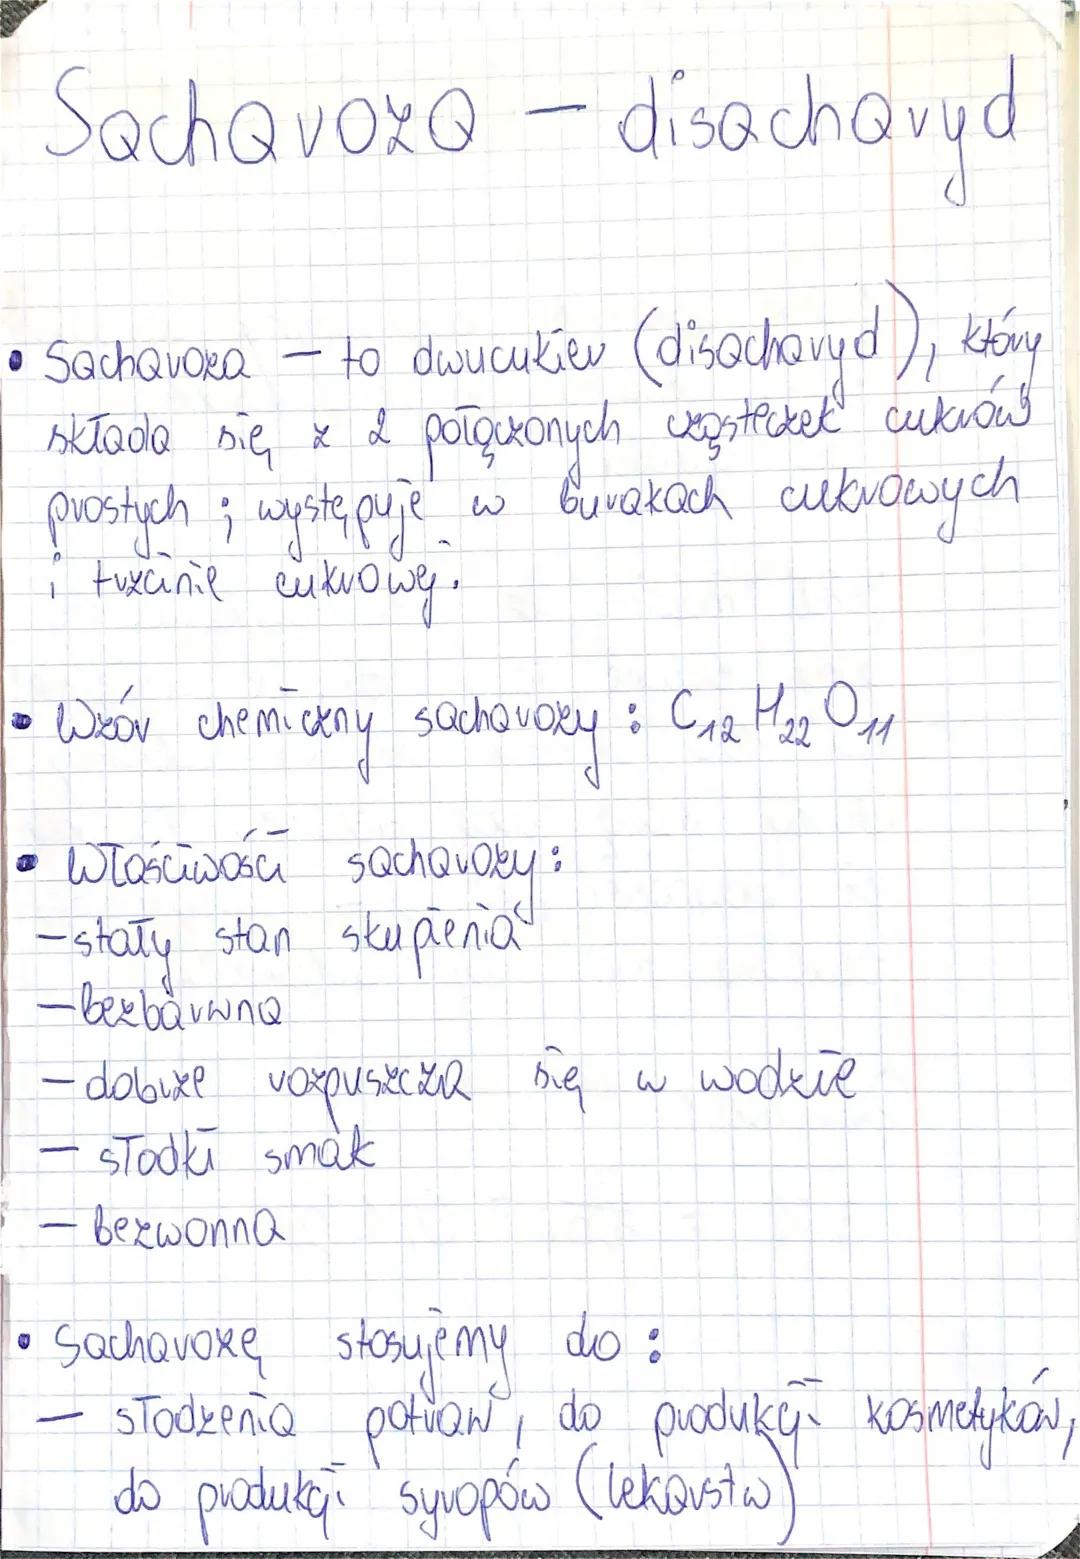 Sacharoza - disacharyd
• Sacharoza - to dwucukier (disacharyd), który
składa się z 2 połączonych cząsteczek cukrów
prostych ; występuje w burakach cukrowych
i trzcinie cukrowej.
• Wzór chemiczny sacharozy : C₁₂H₂₂O₁₁
• Właściwości sacharozy :
- stały stan skupienia
- bezbarwna
- dobrze rozpuszcza się w wodzie
- słodki smak
- bezwonna
• Sacharozę stosujemy do :
- słodzenia potraw, do produkcji kosmetyków,
do produkcji syropów (lekarstw)